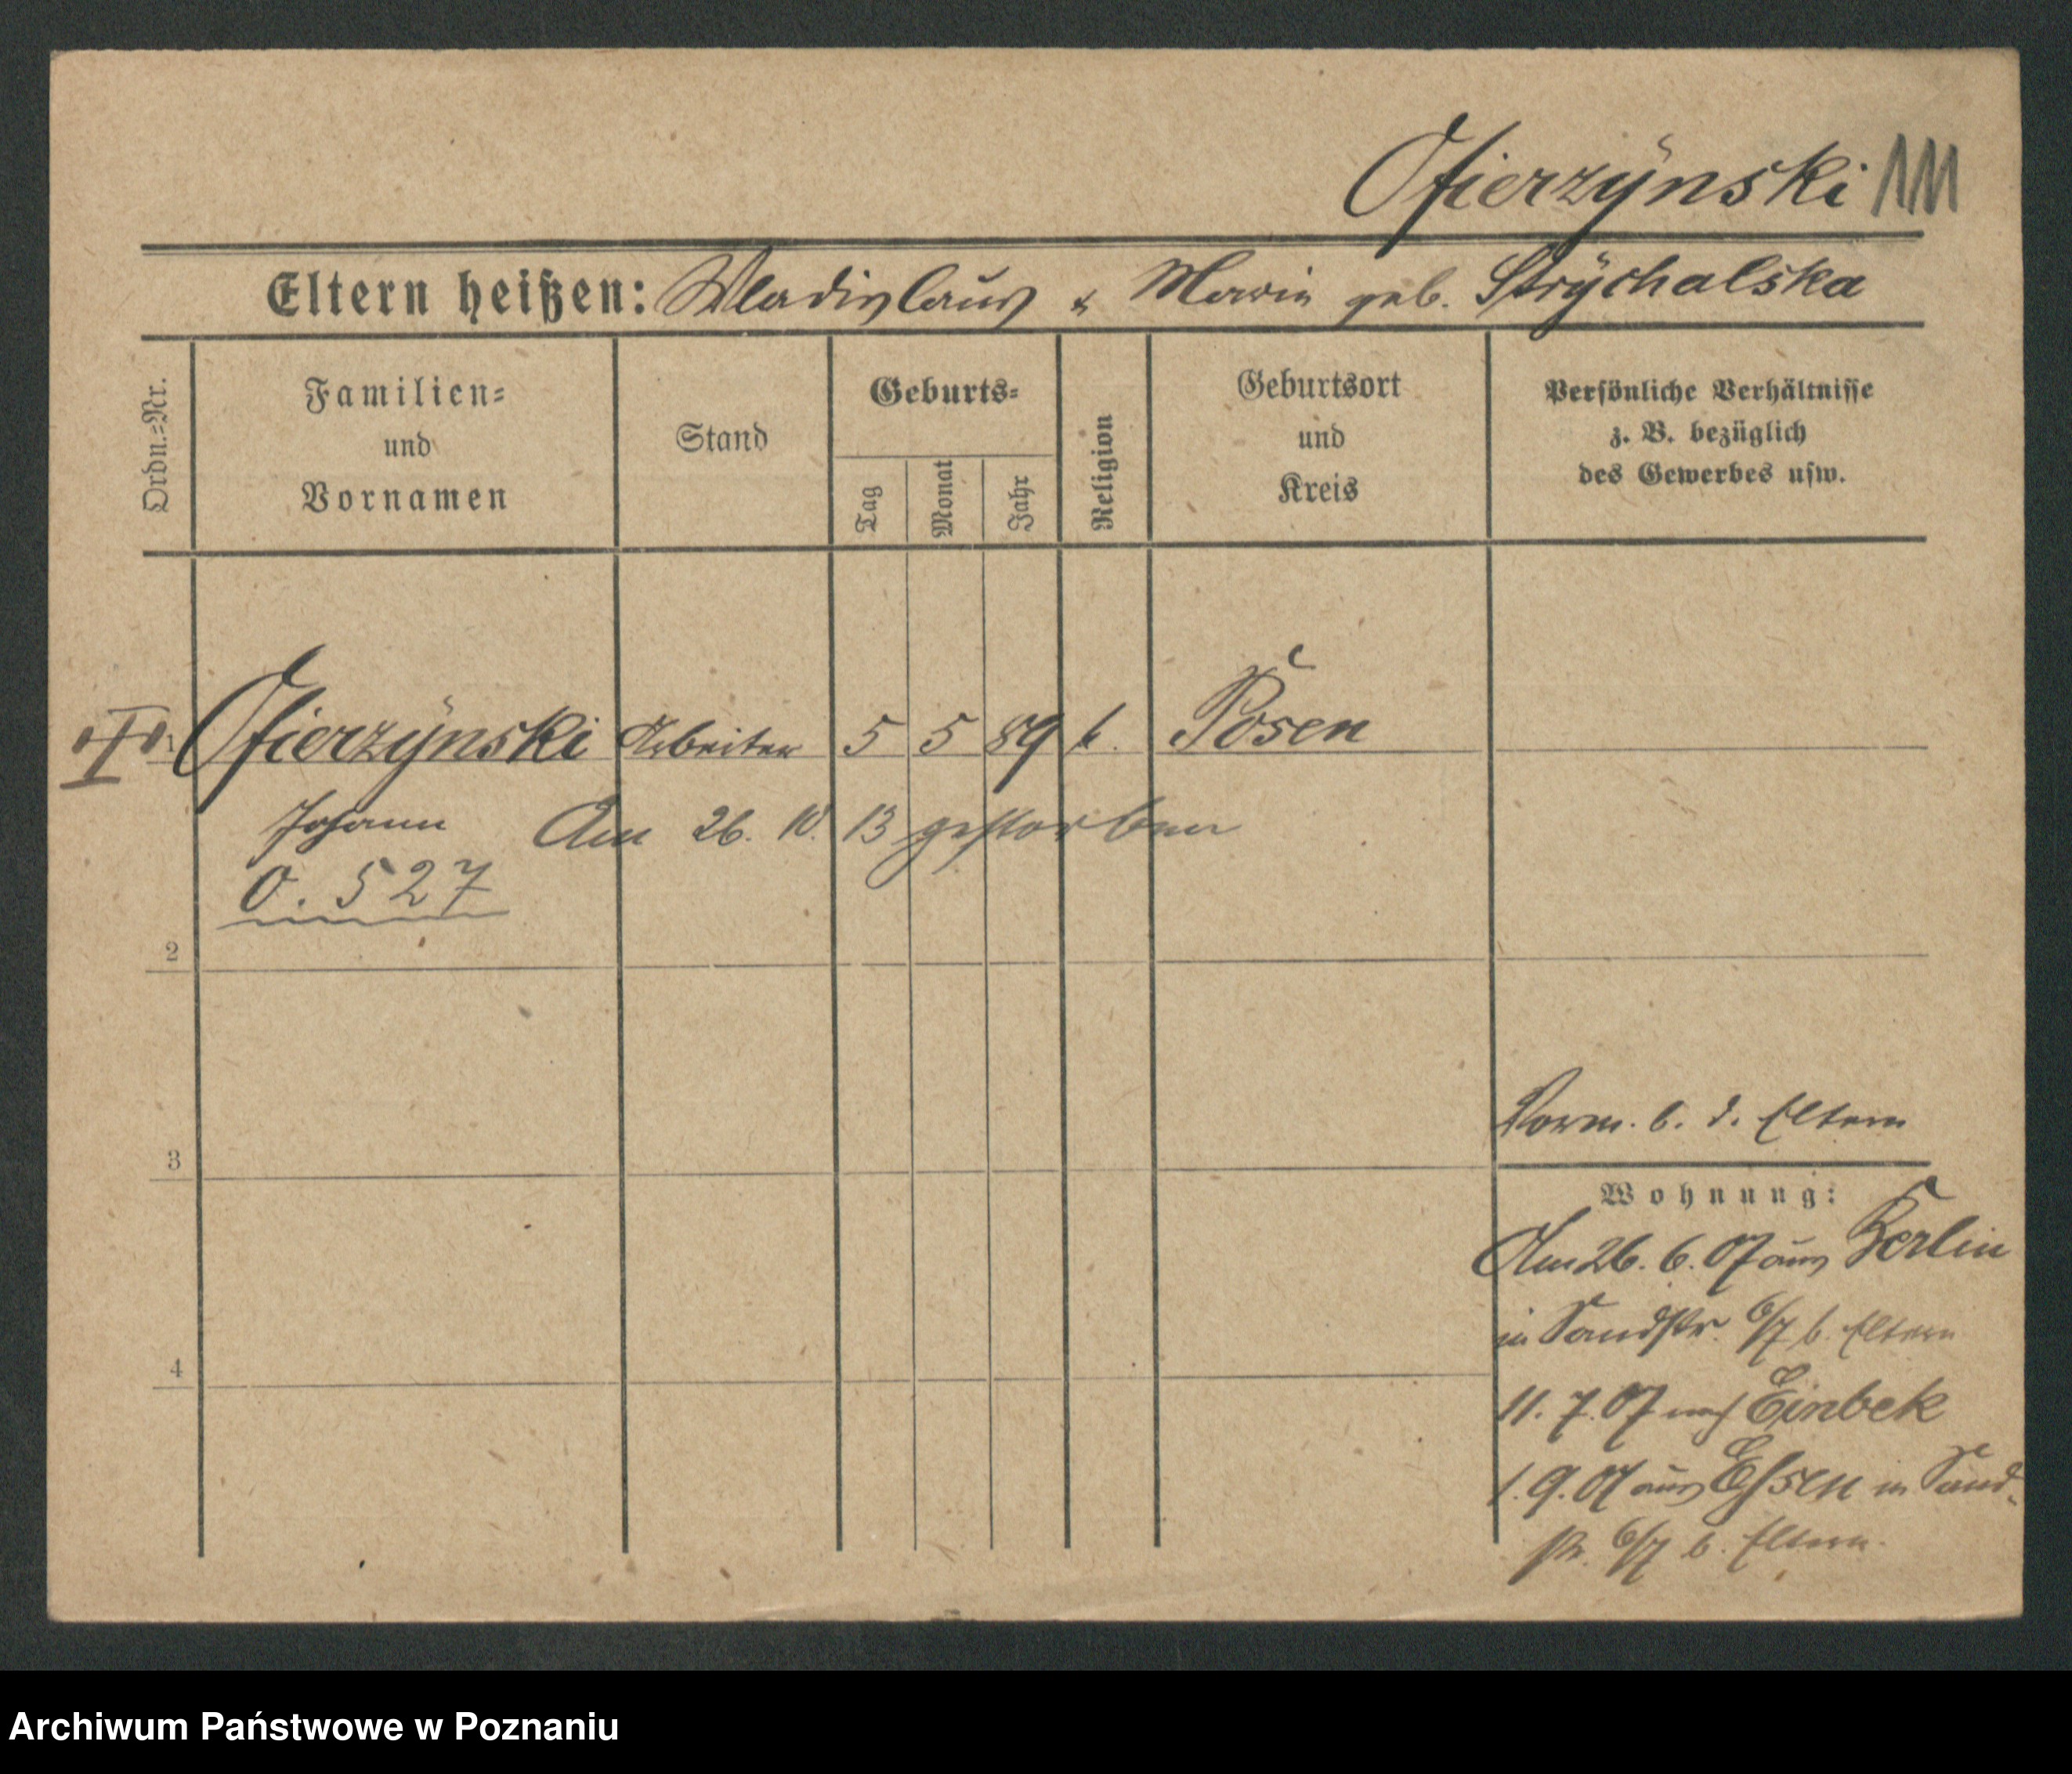 Ofierzÿnski
Eltern heißen: Wladislaus & Marie geb. Strÿchalska
Ordn.=Nr.
Familien=
und
Vornamen
Stand
Geburts=
Tag
Monat
Jahr
Religion
Geburtsort
und
Kreis
Persönliche Verhältnisse
z. B. bezüglich
des Gewerbes usw.
Ofierzÿnski Arbeiter 5 5 89 k. Posen
Johann Am 26. 10. 13 gestorben
O. 527
2
3
4
Vorm. b. d. Eltern
Wohnung:
Am 26. 6. 07 aus Berlin
in Sandstr. 6/7 b. Eltern
11. 7. 07 nach Einbek
1. 9. 07 aus Essen in Sand-
str. 6/7 b. Eltern.
Archiwum Państwowe w Poznaniu